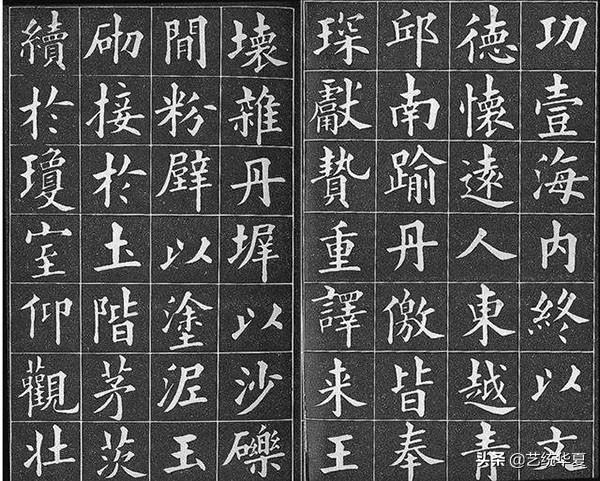 功壹海内終以文
德懷遠人東越青
邱南踰丹儌皆奉
琛獻贄重譯来王
壞雜丹墀以沙礫
間粉壁以塗泥玉
砌接於土階茅茨
續於瓊室仰觀壮
头条 @艺统华夏